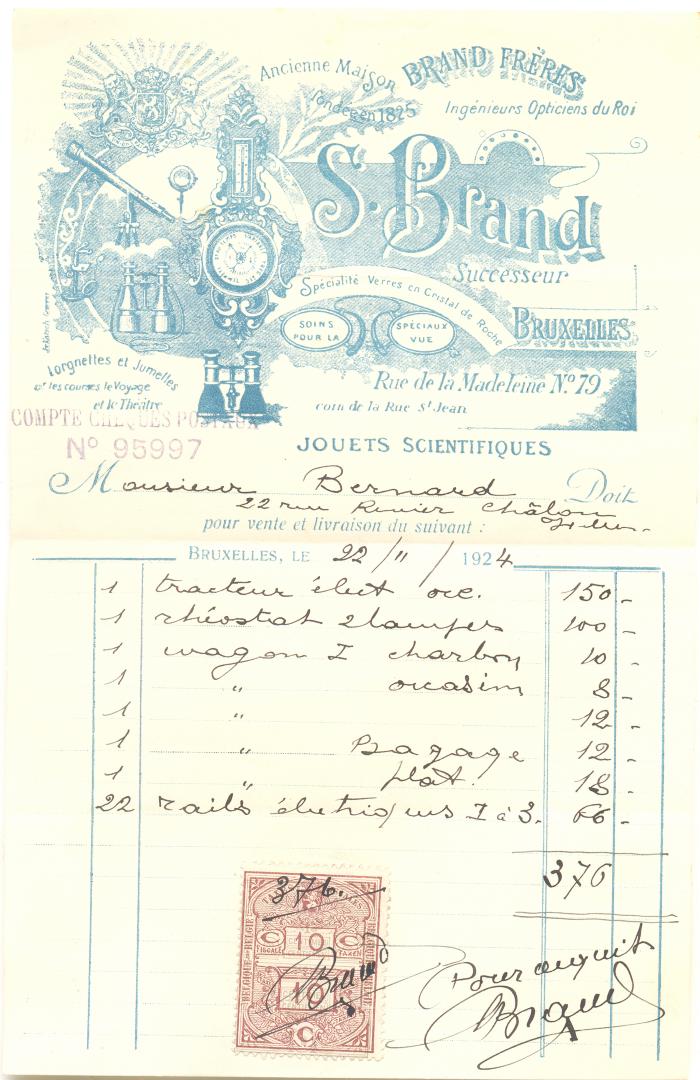 Ancienne Maison BRAND FRÈRES
fondée en 1825
Ingénieurs Opticiens du Roi
S. Brand
Successeur
Spécialité Verres en Cristal de Roche
SOINS POUR LA
SPÉCIAUX VUE
BRUXELLES
Lorgnettes et Jumelles
les courses le Voyage
et le Théâtre
Rue de la Madeleine No. 79
coin de la Rue St Jean
COMPTE CHÈQUES POSTAUX
No 95997
JOUETS SCIENTIFIQUES
Monsieur Bernard Doit
22 rue Châlon
pour vente et livraison du suivant :
BRUXELLES, LE 22/11/1924
1 tracteur élect occ. 150 -
1 rhéostat 2 lampes 100 -
1 wagon I charbon 10 -
1 " occasion 8 -
1 " 12 -
1 " Bagage 12 -
1 " plat. 18 -
22 rails électriques I à 3. 66 -
376
376.
BELGIQUE BELGIE
10
FISCALE TAXEN
10
Brand
Pour acquit
Brand